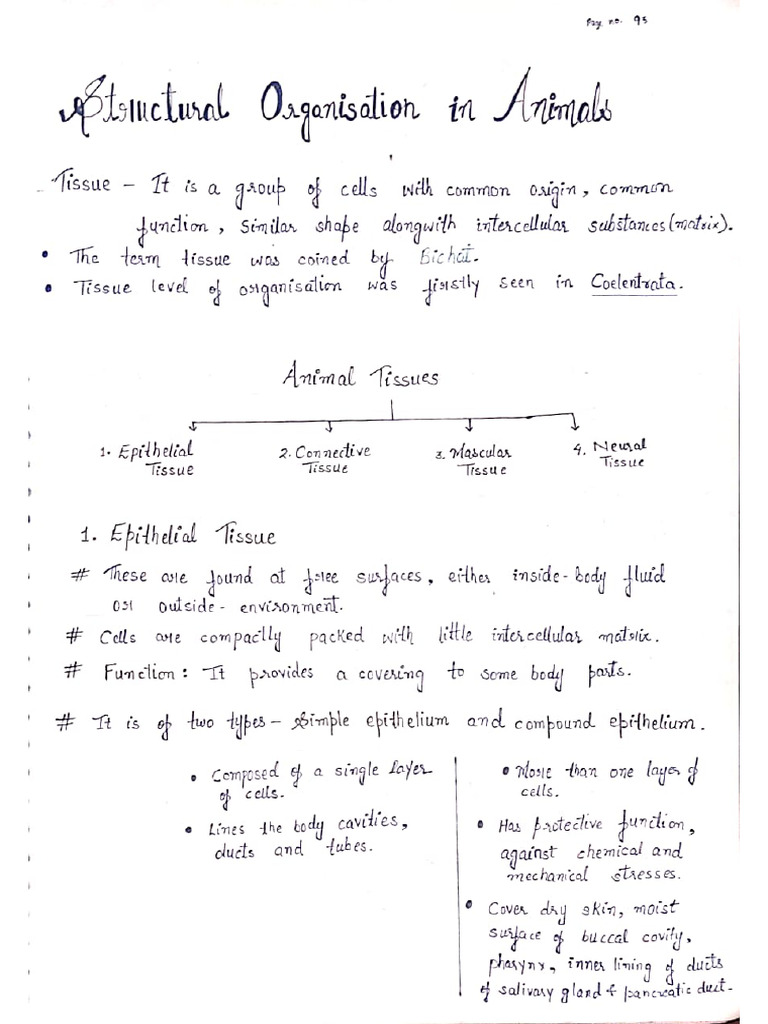 Pag. no. 95
Structural Organisation in Animals
Tissue - It is a group of cells with common origin, common
function, similar shape alongwith intercellular substances (matrix).
• The term tissue was coined by Bichat.
• Tissue level of organisation was firstly seen in Coelentrata.
Animal Tissues
1. Epithelial Tissue
2. Connective Tissue
3. Mascular Tissue
4. Neural Tissue
1. Epithelial Tissue
# These are found at free surfaces, either inside-body fluid
or outside-environment.
# Cells are compactly packed with little intercellular matrix.
# Function: It provides a covering to some body parts.
# It is of two types - Simple epithelium and compound epithelium.
• Composed of a single layer
of cells.
• Lines the body cavities,
ducts and tubes.
• More than one layer of
cells.
• Has protective function,
against chemical and
mechanical stresses.
• Cover dry skin, moist
surface of buccal covity,
pharynx, inner lining of ducts
of salivary gland & pancreatic duct.